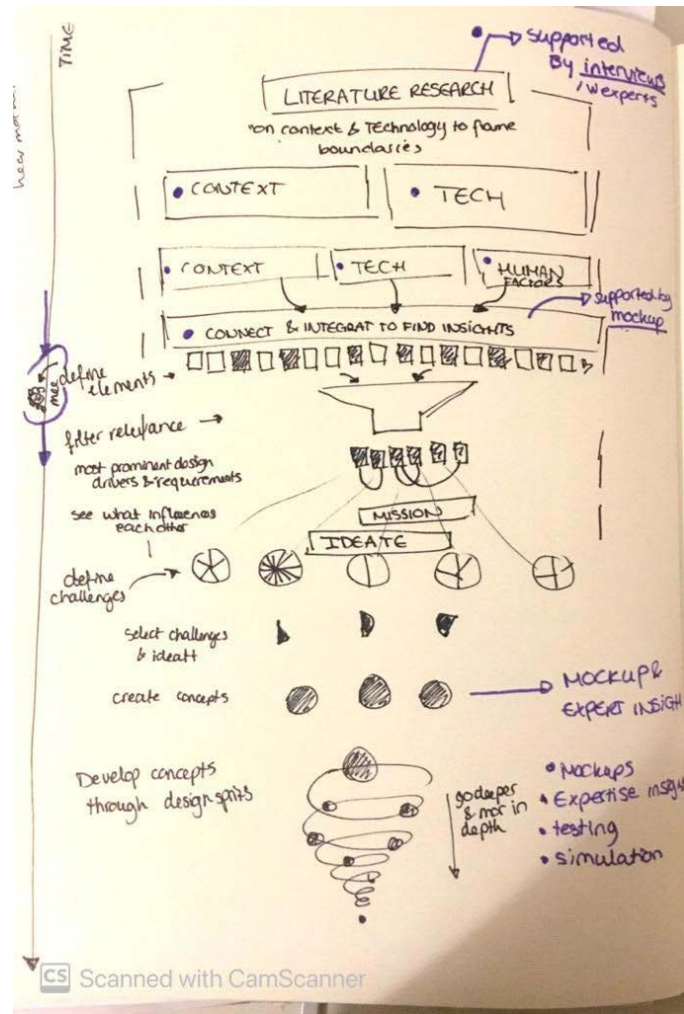 TIME
supported
By interviews
/w experts
LITERATURE RESEARCH
"on context & Technology to frame
boundaries
CONTEXT
TECH
CONTEXT
TECH
HUMAN
FACTORS
supported by
mockup
CONNECT & INTEGRAT TO FIND INSIGHTS
define
elements
filter relevance
most prominent design
drivers & requirements
see what influences
each other
MISSION
IDEATE
define
challenges
select challenges
& ideatt
create concepts
MOCKUP &
EXPERT INSIGH
Develop concepts
through design sprits
go deeper
& mor in
depth
Mockups
Expertise insigh
testing
simulation
CS Scanned with CamScanner